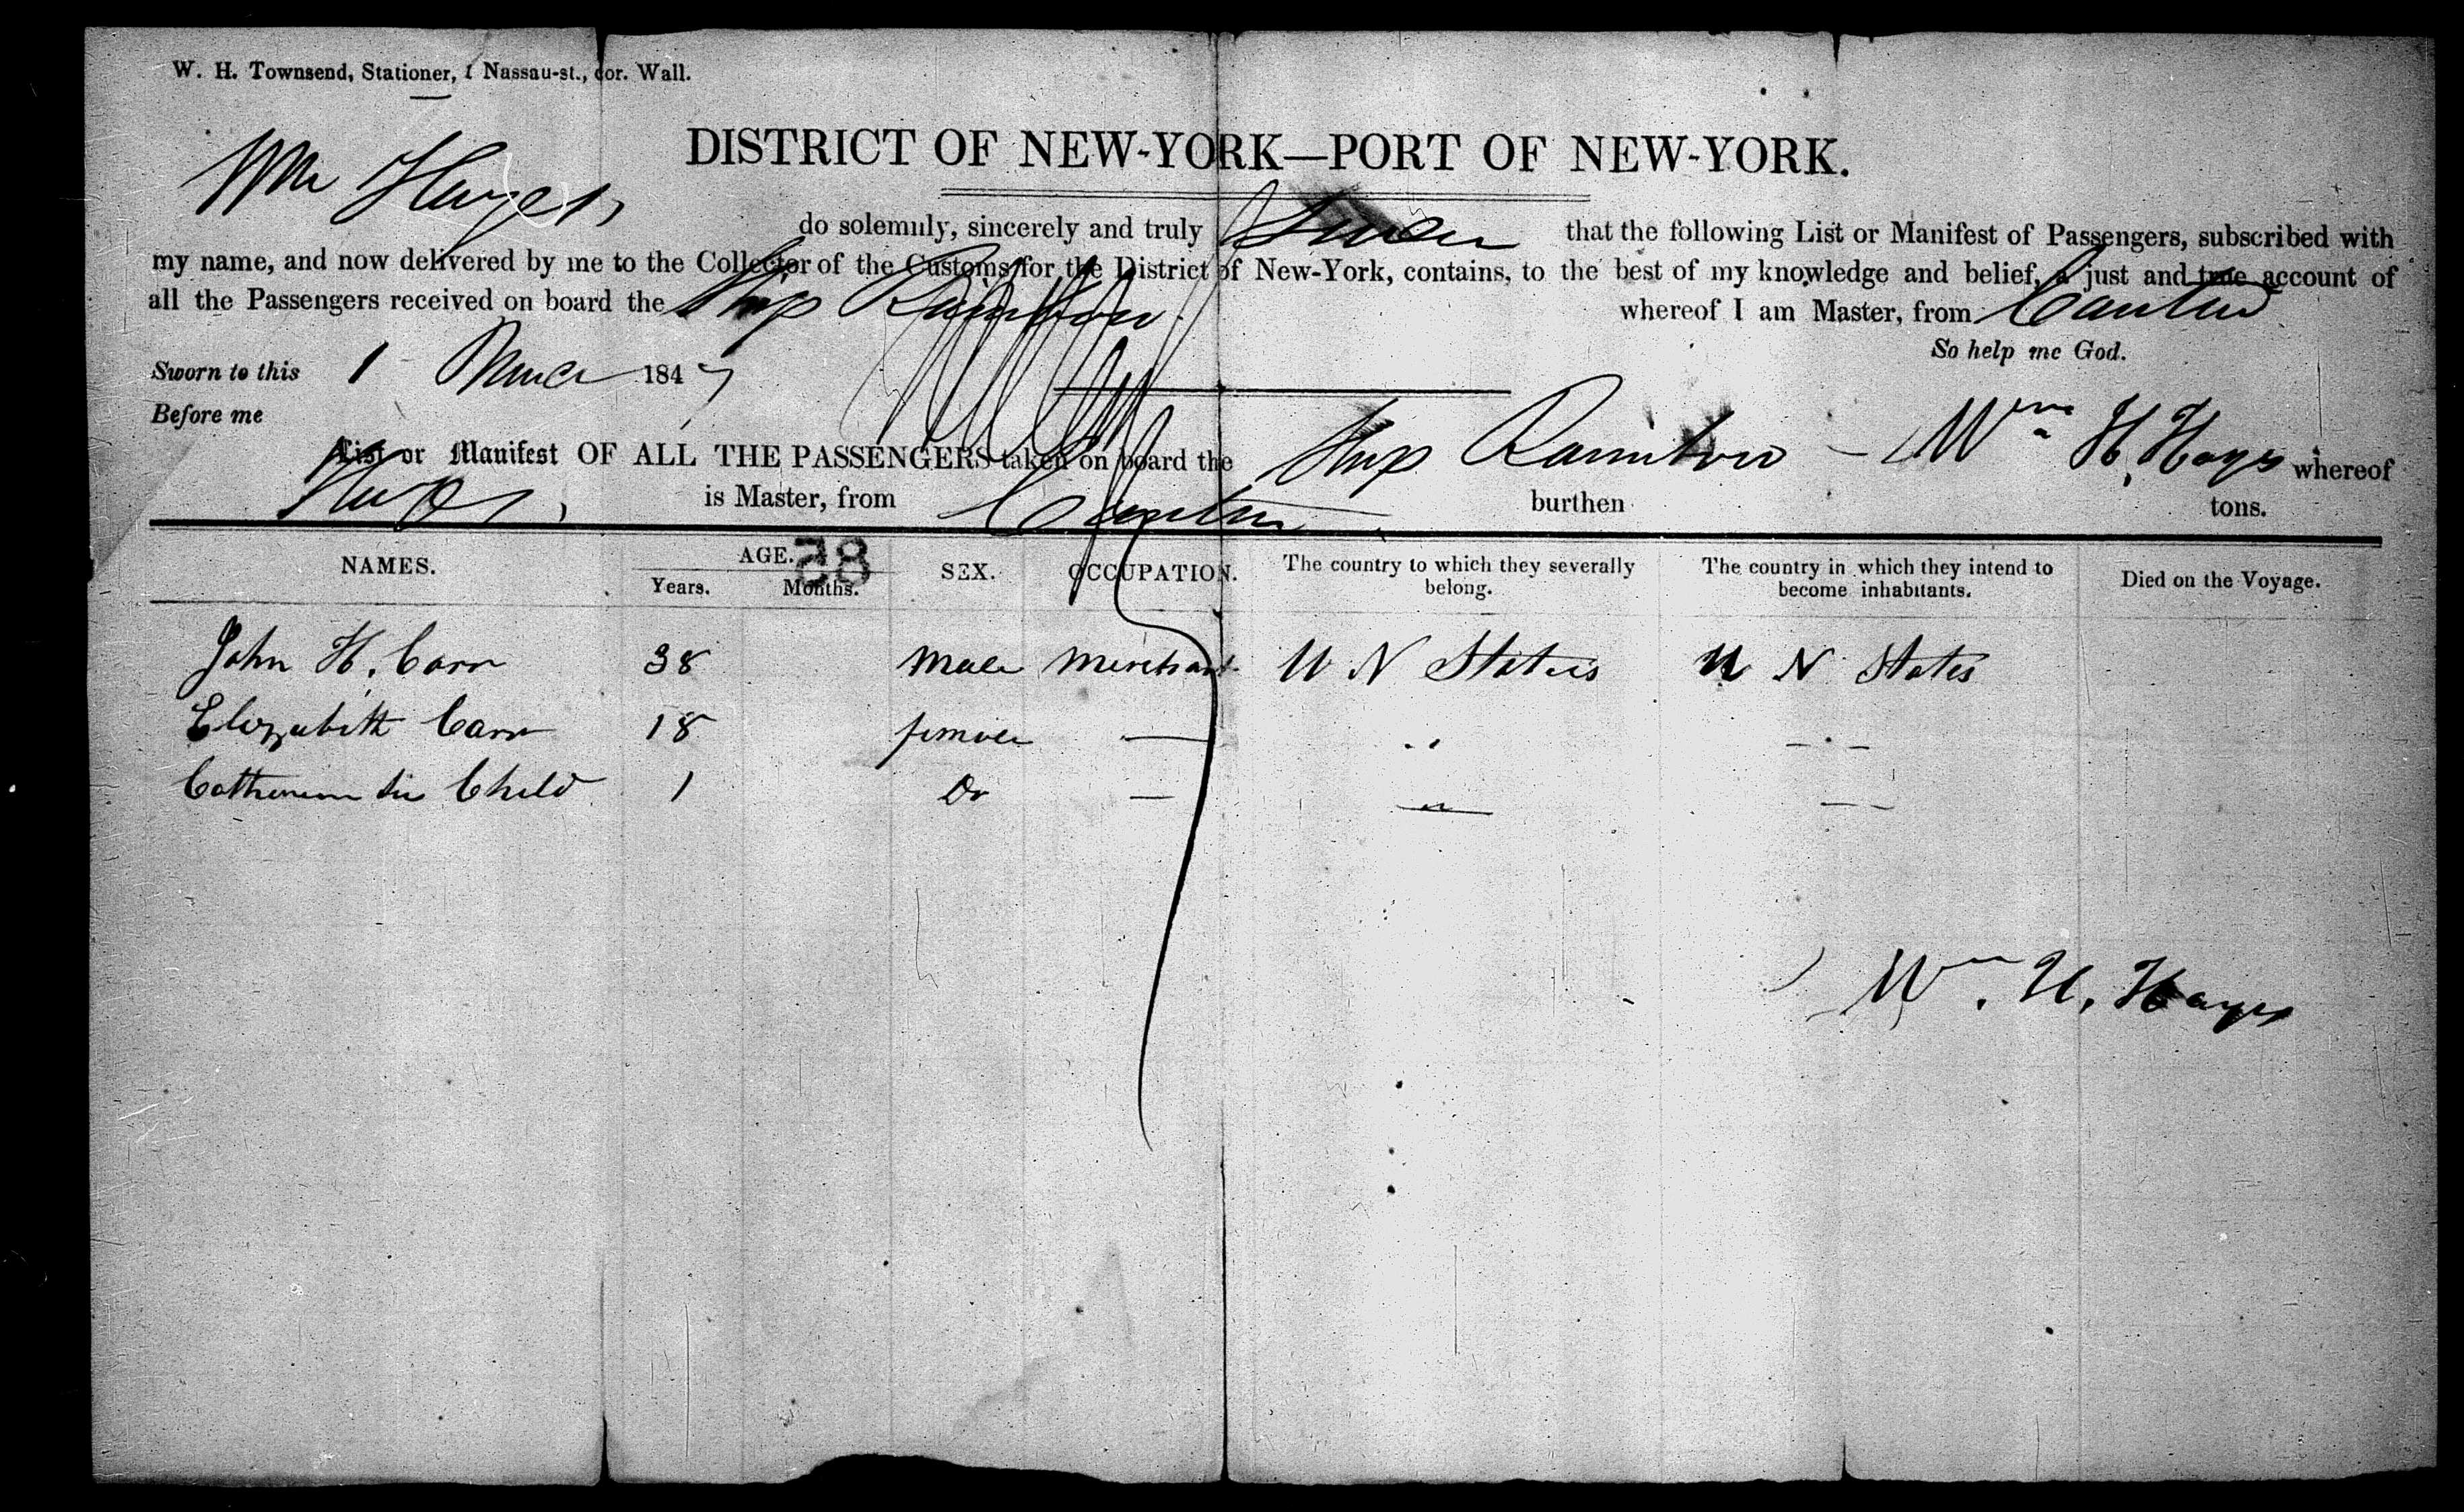 W. H. Townsend, Stationer, 1 Nassau-st., cor. Wall.
DISTRICT OF NEW-YORK—PORT OF NEW-YORK.
Wm Hayes, do solemnly, sincerely and truly Swear that the following List or Manifest of Passengers, subscribed with
my name, and now delivered by me to the Collector of the Customs for the District of New-York, contains, to the best of my knowledge and belief, a just and true account of
all the Passengers received on board the Ship Rainbow whereof I am Master, from Canton
So help me God.
Sworn to this 1 March 1847
Before me
List or Manifest OF ALL THE PASSENGERS taken on board the Ship Rainbow – Wm H. Hays whereof
is Master, from Canton burthen tons.
NAMES. AGE. SEX. OCCUPATION. The country to which they severally belong. The country in which they intend to become inhabitants. Died on the Voyage.
Years. Months.
58
John H. Carr 38 Male Merchant U N States U N States
Elizabeth Carr 18 female — " — " —
Catherine his Child 1 Do — — " — — —
Wm. H. Hayes